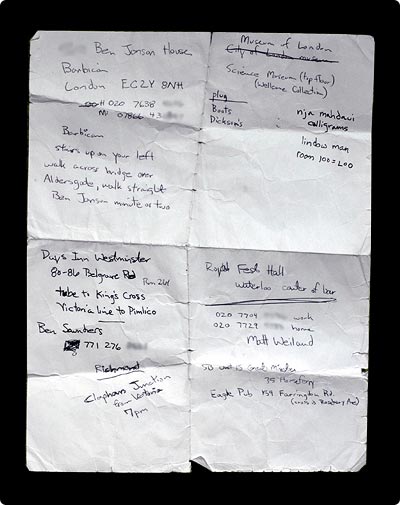 Ben Jonson House
Barbican
London EC2Y 8NH
H 020 7638
M 07866 43
Barbican
stairs up on your left
walk across bridge over
Aldersgate, walk straight
Ben Jonson minute or two
Museum of London
City of London museum
Science Museum (top floor)
(Wellcome Collection)
plug
Boots
Dickson's
nja mahdaui
calligrams
lindow man
room 100 = LOO
Days Inn Westminster
80-86 Belgrave Rd
Rm 264
tube to King's Cross
Victoria line to Pimlico
Ben Saunders
771 276
Richmond
Clapham Junction
from Victoria
7pm
Royal Fest Hall
Waterloo center of bar
020 7704 work
020 7729 home
Matt Weiland
Eagle Pub 159 Farringdon Rd.
(cross is Rosebery Ave)